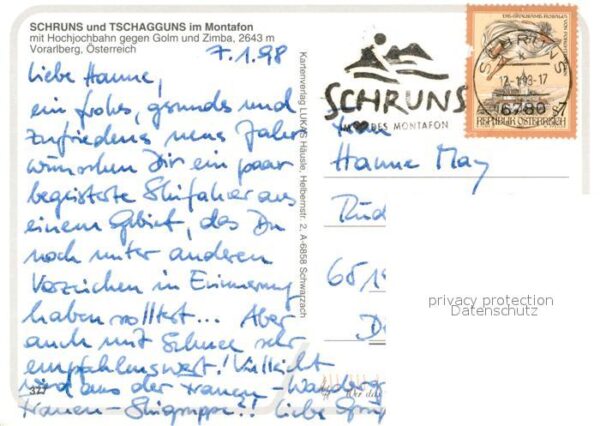 SCHRUNS und TSCHAGGUNS im Montafon
mit Hochjochbahn gegen Golm und Zimba, 2643 m
Vorarlberg, Österreich
7.1.98
Liebe Hanne,
ein frohes, gesundes und
zufriedenes neues Jahr
wünschen Dir ein paar
begeisterte Skifahrer aus
einem Gebiet, das Du
noch unter anderen
Vorzeichen in Erinnerung
haben solltest... Aber
auch mit Schnee sehr
empfehlenswert! Vielleicht
wird aus der Frauen-Wandergr
Frauen-Skigruppe?! Liebe Grü
327
Kartenverlag LUKAS Häusle, Helbernstr. 2, A-6858 Schwarzach
SCHRUNS
IM DES MONTAFON
SCHRUNS
12-1.98-17
6780
REPUBLIK ÖSTERREICH
Frau
Hanne May
Rüd
651
D
privacy protection
Datenschutz